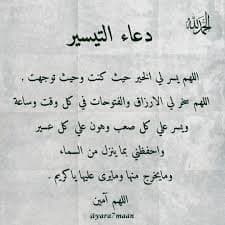 الحمدلله
دعاء التيسير
اللهم يسر لي الخير حيث كنت وحيث توجهت .
اللهم سخر لي الارزاق والفتوحات في كل وقت وساعة
ويسر علي كل صعب وهون علي كل عسير
واحفظني بما ينزل من السماء
ومايخرج منها ومايرى عليها ياكريم .
اللهم آمين
ayara7maan